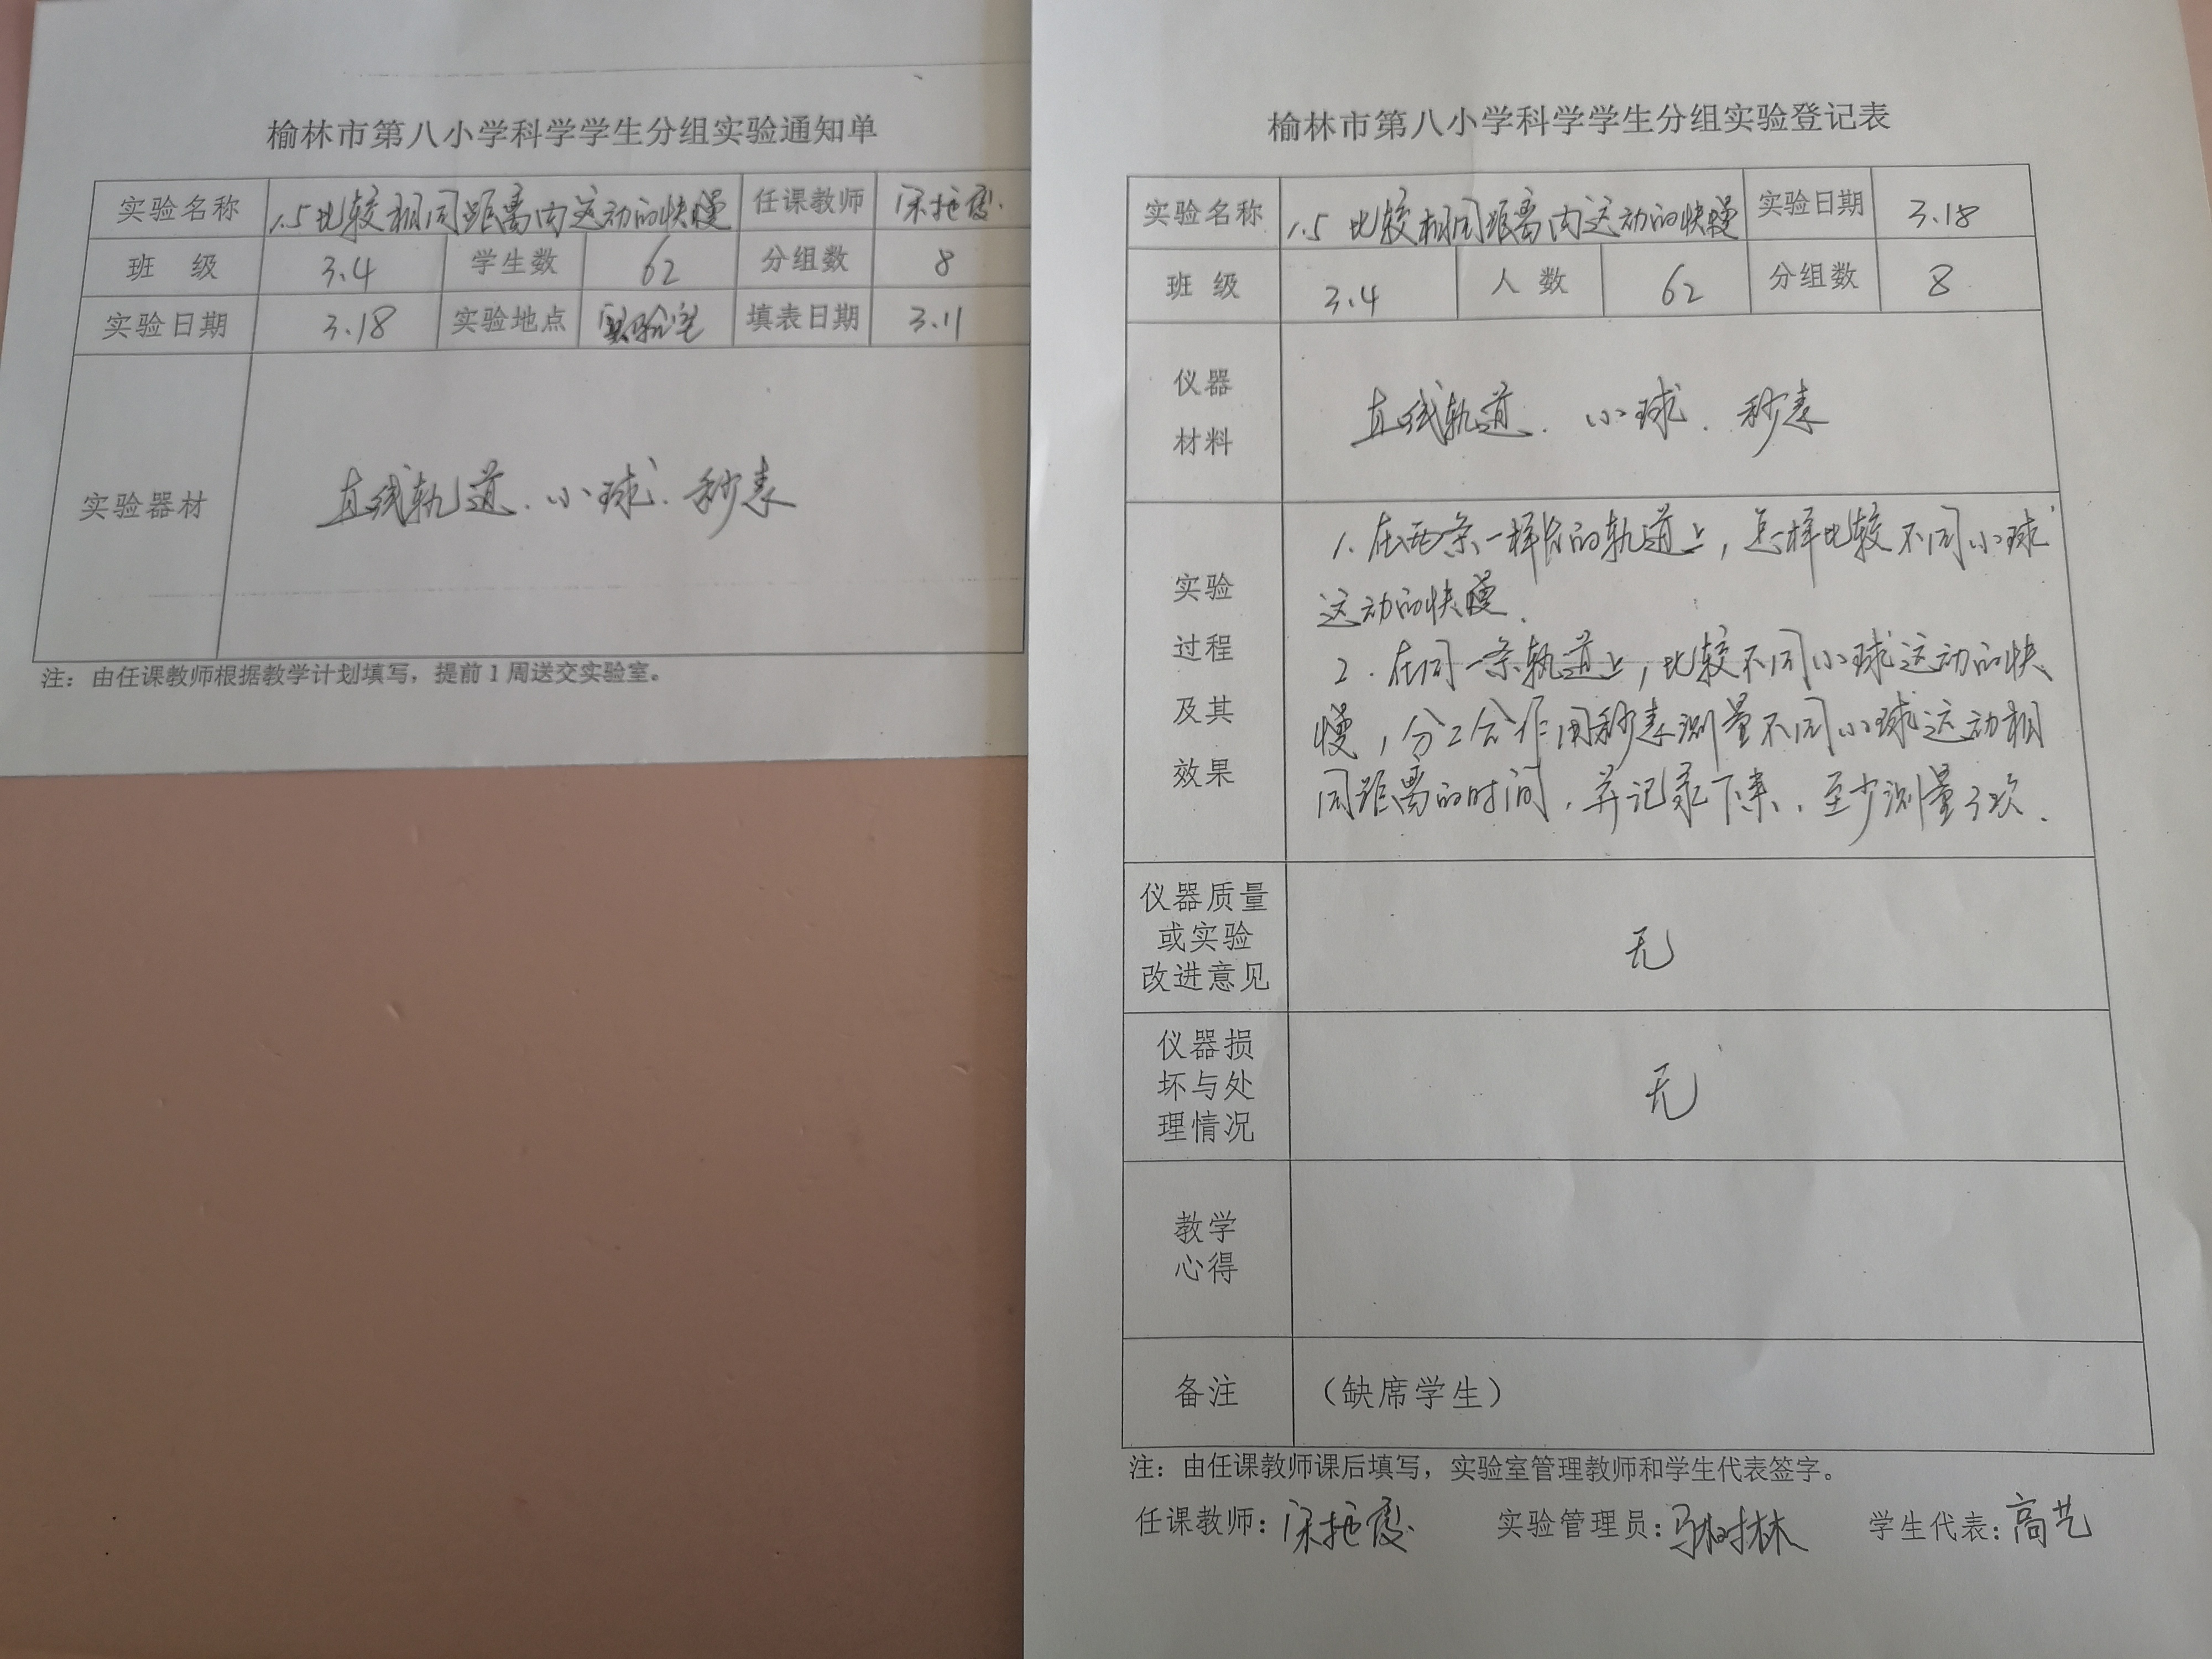 榆林市第八小学科学学生分组实验通知单
实验名称 1.5比较相同距离内运动的快慢 任课教师
班 级 3.4 学生数 62 分组数 8
实验日期 3.18 实验地点 实验室 填表日期 3.11
实验器材 直线轨道、小球、秒表
注：由任课教师根据教学计划填写，提前1周送交实验室。
榆林市第八小学科学学生分组实验登记表
实验名称 1.5 比较相同距离内运动的快慢 实验日期 3.18
班 级 3.4 人 数 62 分组数 8
仪器
材料
直线轨道、小球、秒表
实验
过程
及其
效果
1.在两条一样长的轨道上，怎样比较不同小球
运动的快慢.
2.在同一条轨道上，比较不同小球运动的快
慢，分工合作用秒表测量不同小球运动相
同距离的时间，并记录下来，至少测量3次.
仪器质量
或实验
改进意见
无
仪器损
坏与处
理情况
无
教学
心得
备注 （缺席学生）
注：由任课教师课后填写，实验室管理教师和学生代表签字。
任课教师： 实验管理员：马树林 学生代表：高艺